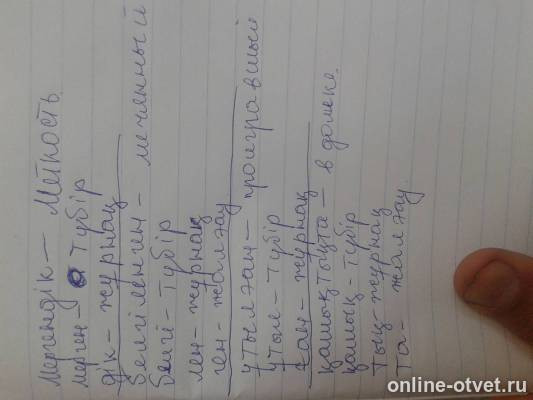 Мергендік — Меткость.
мерген - түбір
дік - жұрнақ
Белгіленген - меченный
белгі - түбір
лен - жұрнақ
ген - жалғау
ұтылған - проигравший
ұтыл - түбір
ған - жұрнақ
қашықтықта - в далеке.
қашық - түбір
тық - жұрнақ
та - жалғау
online-otvet.ru